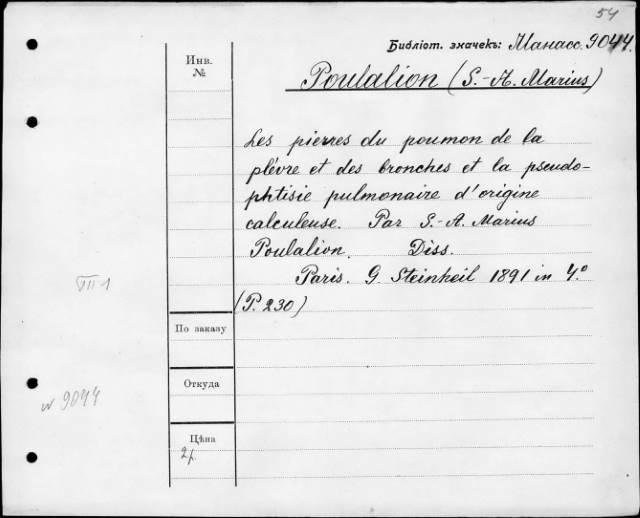 54
Библіот. значекъ: Манасс. 9044.
Инв.
№
Poulalion (S.-A. Marius)
Les pierres du poumon de la
plévre et des bronches et la pseudo-
phtisie pulmonaire d'origine
calculeuse. Par S.-A. Marius
Poulalion. Diss.
Paris. G. Steinheil 1891 in 4.°
(P. 230)
VIII 1
По заказу
Откуда
№ 9044
Цѣна
2р.